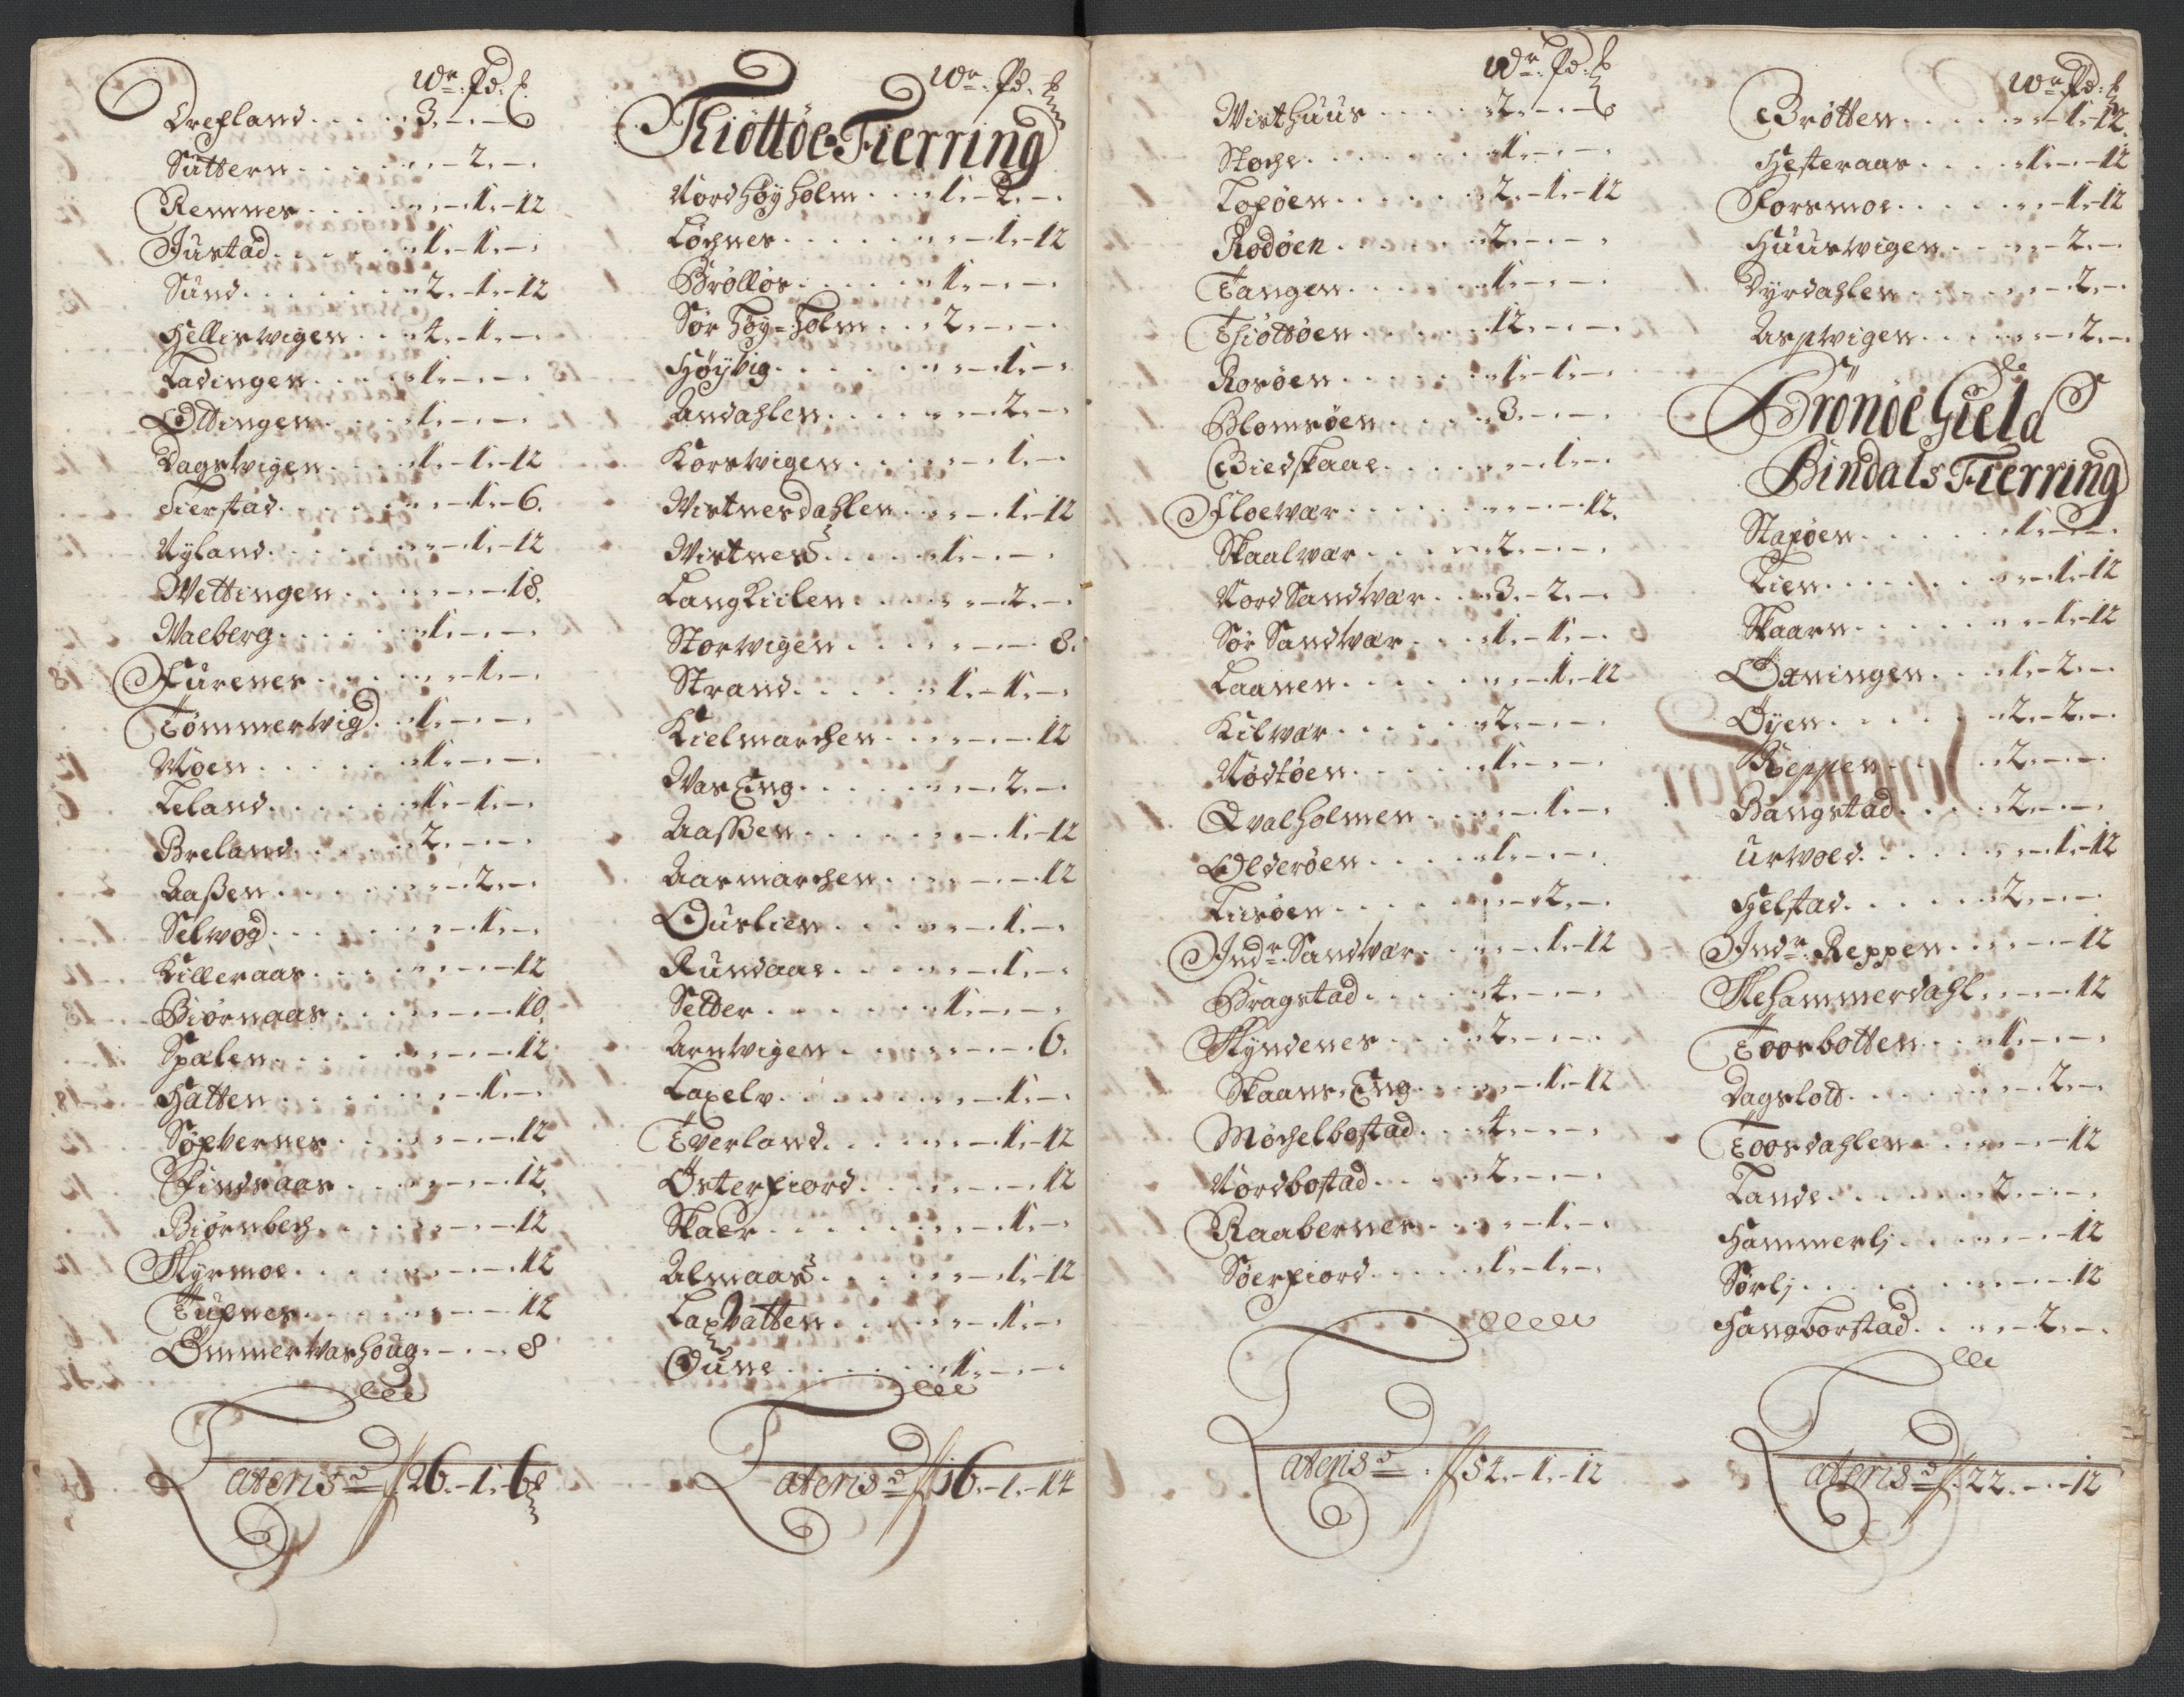 Wr. Pd. £
Drefland . . . . . 3. - . -
Suttern . . . . . . . - 2. -
Remnes . . . . . . . - 1. - 12
Justad . . . . . 1. - 1. -
Sund . . . . . . . 2. - 1. - 12
Hellisvigen . . . 4. - 1. -
Ladingen . . . . . 1. - . -
Ottingen . . . . . 1. - . -
Dagsvigen . . . . 1. - 1. - 12
Tierstad . . . . . . . - 1. - 6.
Nyland . . . . . . . - 1. - 12
Wettingen . . . . . - . - 18.
Waeberg . . . . . . 1. - . -
Furenes . . . . . . . - 1. -
Tømmervig . . 1. - . -
Moen . . . . . . 1. - . -
Leland . . . . . . 1. - 1. -
Breland . . . . . 2. - . -
Aaßen . . . . . . . - 2. -
Selvog . . . . . . . - 1. -
Killeraas . . . . . . - . - 12
Biørnaas . . . . . . - . - 10.
Spalen . . . . . . . - . - 12
Hatten . . . . . . . - 1. -
Søfvernes . . . . . - . - 12
Findsaas . . . . . . - . - 12.
Biørnbech . . . . . - . - 12
Skyrmoe . . . . . . - . - 12
Tufnes . . . . . . - . - 12
Ommervashoug . - . - 8
Lateris d 26. - 1. - 6
Wr. Pd. £
Thiøttøe Fierring
Nord Høyholm . . . 1. - 2. -
Løchnes . . . . . . . - 1. - 12
Brølløs . . . . . . 1. - . -
Sør Høy-holm . . . 2. - . -
Høyvig . . . . . . . - 1. -
Andahlen . . . . . . - 2. -
Korsvigen . . . . . - 1. -
Wistnesdahlen . . . - 1. - 12
Wistnes . . . . . 1. - . -
Langkiilen . . . . . - 2. -
Storvigen . . . . . - . - 8.
Strand . . . . . . 1. - 1. -
Kielmarchen . . . . - . - 12
Was Eng . . . . . . - 2. -
Aaßen . . . . . . . - 1. - 12
Aasmarchen . . . . - . - 12
Ouslien . . . . . . - 1. -
Rundaas . . . . . . - 1. -
Setter . . . . . . 1. - . -
Arnvigen . . . . . - . - 6.
Laxelv . . . . . . . - 1. -
Tverland . . . . . . - 1. - 12
Østerfiord . . . . . - . - 12
Skaer . . . . . . . - 1. -
Almaas . . . . . . - 1. - 12
Laxvatten . . . . . . - 1. -
Oune . . . . . . 1. - . -
Lateris d 16. - 1. - 14
Wr. Pd. £
Wisthuus . . . . . 2. - . -
Stoche . . . . . . 1. - . -
Toføen . . . . . . 2. - 1. - 12
Rodøen . . . . . . 2. - . -
Tangen . . . . . . 1. - . -
Thiøttøen . . . . . 12. - . -
Rosøen . . . . . . 1. - 1. -
Blomsøen . . . . . 3. - . -
Biedskaae . . . . . . - 1. -
Floevær . . . . . . . - . - 12.
Skaalvær . . . . . 2. - . -
Nord Sandvær . . 3. - 2. -
Sør Sandvær . . . 1. - 1. -
Laanen . . . . . . . - 1. - 12
Kilvær . . . . . . 2. - . -
Nødtøen . . . . . 1. - . -
Qvalholmen . . . . - 1. -
Olderøen . . . . . 1. - . -
Tiisøen . . . . . . . - 2. -
Indr. Sandvær . . . . - 1. - 12
Bragstad . . . . . 4. - . -
Skyndenes . . . . 2. - . -
Skaans Eng . . . . . - 1. - 12
Møchelbostad . . 4. - . -
Nordbostad . . . . 2. - . -
Raabernes . . . . . - 1. -
Søerfiord . . . . . 1. - 1. -
Lateris d. 54. - 1. - 12
Wr. Pd. £
Brøtten . . . . . . . - 1. - 12.
Hesteraas . . . . 1. - . - 12
Forsmoe . . . . . . - 1. - 12
Huusvigen . . . . . - 2. -
Dyrdahlen . . . . . - 2. -
Aspvigen . . . . . . - 2. -
Brønøe Gield
Bindals Fierring
Stapøen . . . . . . 1. - . -
Lien . . . . . . . . - 1. - 12
Skaarn . . . . . . . - 1. - 12
Oxningen . . . 1. - 2. -
Øyen . . . . . . . 2. - 2. -
Reppen . . . . . . 2. - . -
Bangstad . . . . . 2. - . -
Urvold . . . . . . . - 1. - 12
Helstad . . . . . . 2. - . -
Indr. Reppen . . . . - . - 12
Flehammerdahl . . - . - 12
Toosbotten . . . 1. - . -
Dagslott . . . . . . . - 2. -
Toosdahlen . . . . . - . - 12
Lande . . . . . . . 2. - . -
Hammerlj . . . . . - . - 12
Sørlj . . . . . . . . - . - 12
Hangborstad . . . . - 2. -
Lateris d 22. - . - 12